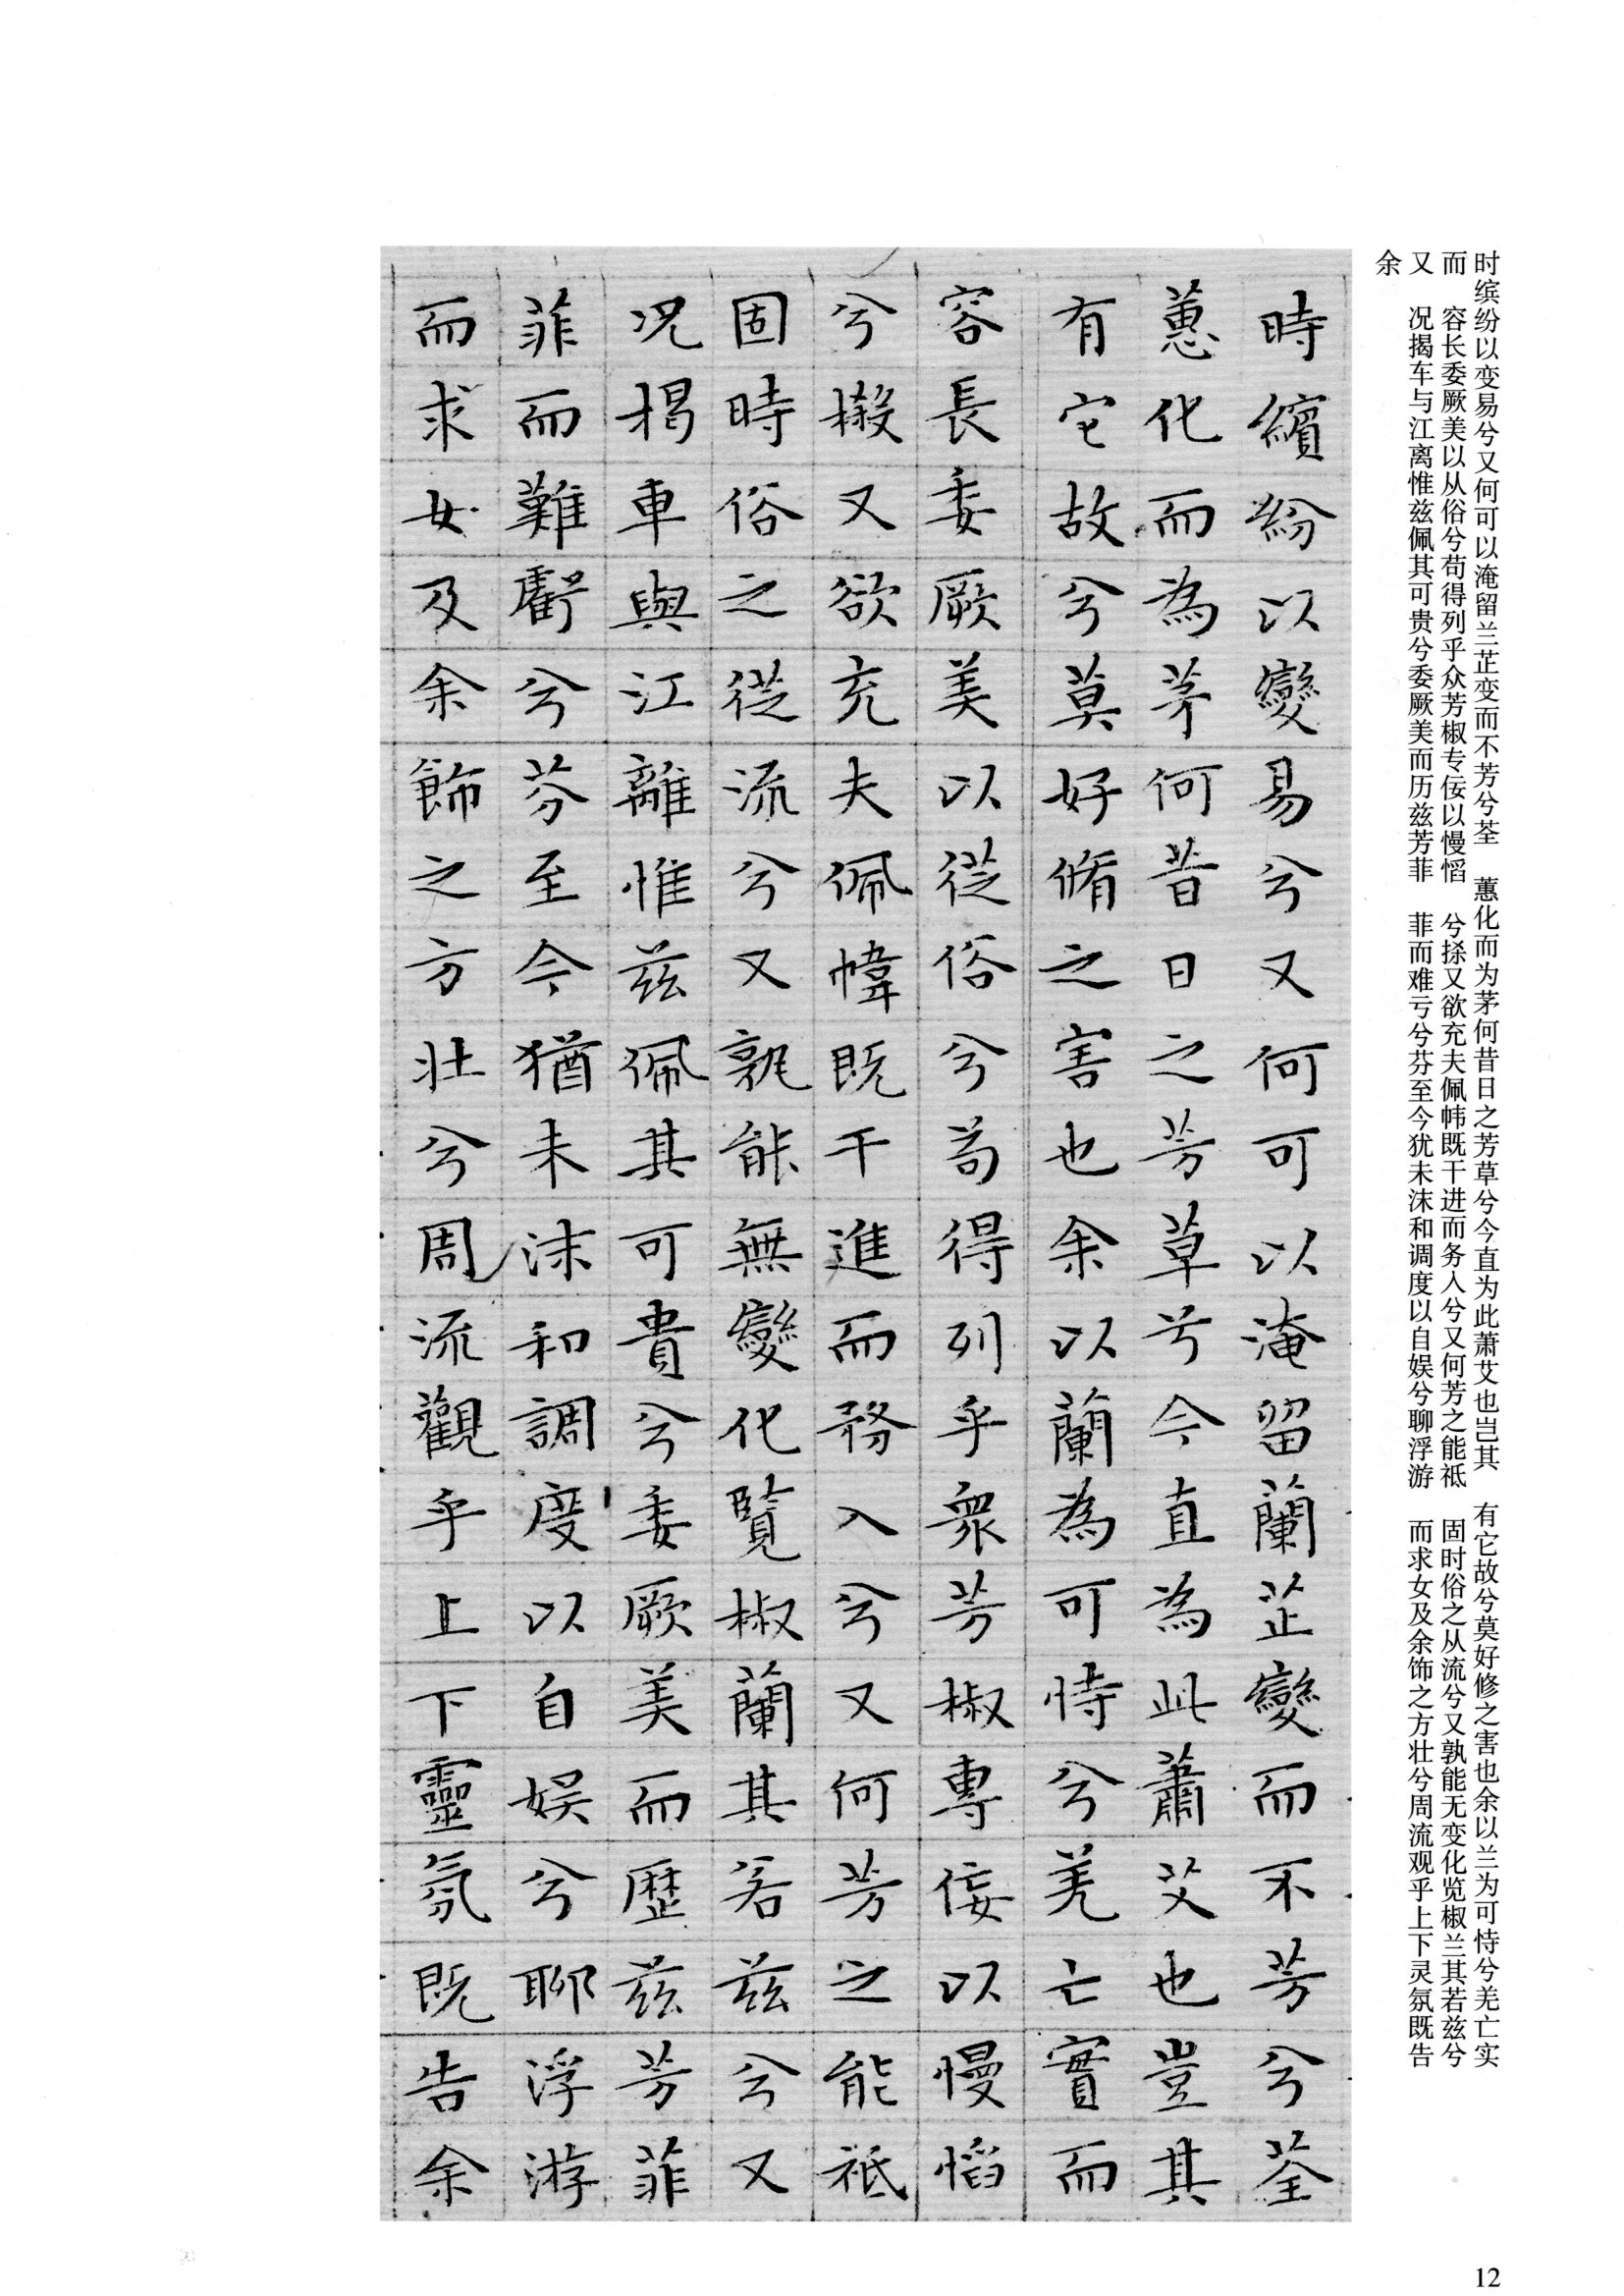 时缤纷以变易兮又何可以淹留兰芷变而不芳兮荃　蕙化而为茅何昔日之芳草兮今直为此萧艾也岂其　有它故兮莫好修之害也余以兰为可恃兮羌亡实
而　容长委厥美以从俗兮苟得列乎众芳椒专佞以慢慆　兮㧲又欲充夫佩帏既干进而务入兮又何芳之能祗　固时俗之从流兮又孰能无变化览椒兰其若兹兮
又　况揭车与江离惟兹佩其可贵兮委厥美而历兹芳菲　菲而难亏兮芬至今犹未沫和调度以自娱兮聊浮游　而求女及余饰之方壮兮周流观乎上下灵氛既告
余
時繽紛以變易兮又何可以淹留蘭芷變而不芳兮荃
蕙化而為茅何昔日之芳草兮今直為此蕭艾也豈其
有它故兮莫好脩之害也余以蘭為可恃兮羌亡實而
容長委厥美以從俗兮苟得列乎衆芳椒專佞以慢慆
兮樧又欲充夫佩幃既干進而務入兮又何芳之能祗
固時俗之從流兮又孰能無變化覽椒蘭其若茲兮又
況揭車與江離惟茲佩其可貴兮委厥美而歷茲芳菲
菲而難虧兮芬至今猶未沫和調度以自娛兮聊浮游
而求女及余飾之方壯兮周流觀乎上下靈氛既告余
12